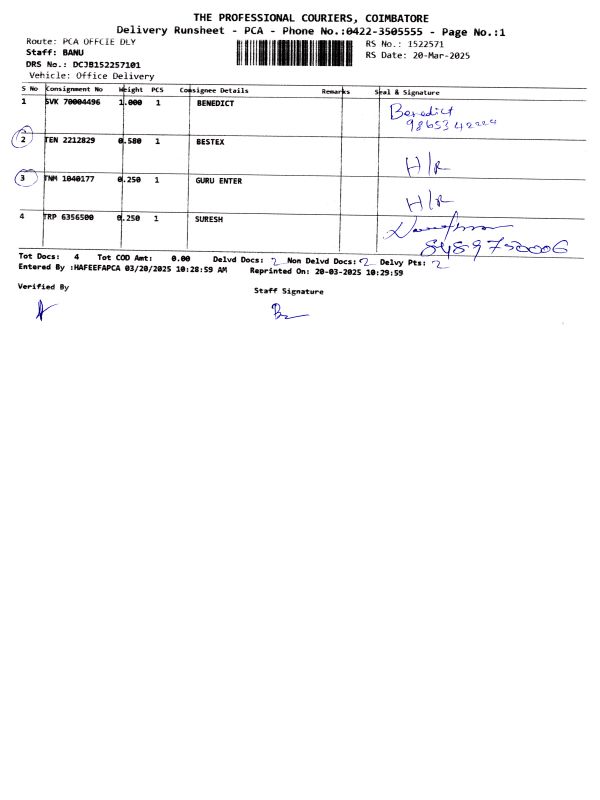 THE PROFESSIONAL COURIERS, COIMBATORE
Delivery Runsheet - PCA - Phone No.:0422-3505555 - Page No.:1
Route: PCA OFFCIE DLY
RS No.: 1522571
Staff: BANU
RS Date: 20-Mar-2025
DRS No.: DCJB152257101
Vehicle: Office Delivery
S No Consignment No Weight PCS Consignee Details Remarks Seal & Signature
1 SVK 70004496 1.000 1 BENEDICT Benedict
2 TEN 2212829 0.580 1 BESTEX H/R
3 TNM 1040177 0.250 1 GURU ENTER H/R
4 TRP 6356500 0.250 1 SURESH
Tot Docs: 4 Tot COD Amt: 0.00 Delvd Docs: 2 Non Delvd Docs: 2 Delvy Pts: 2
Entered By :HAFEEFAPCA 03/20/2025 10:28:59 AM Reprinted On: 20-03-2025 10:29:59
Verified By
Staff Signature